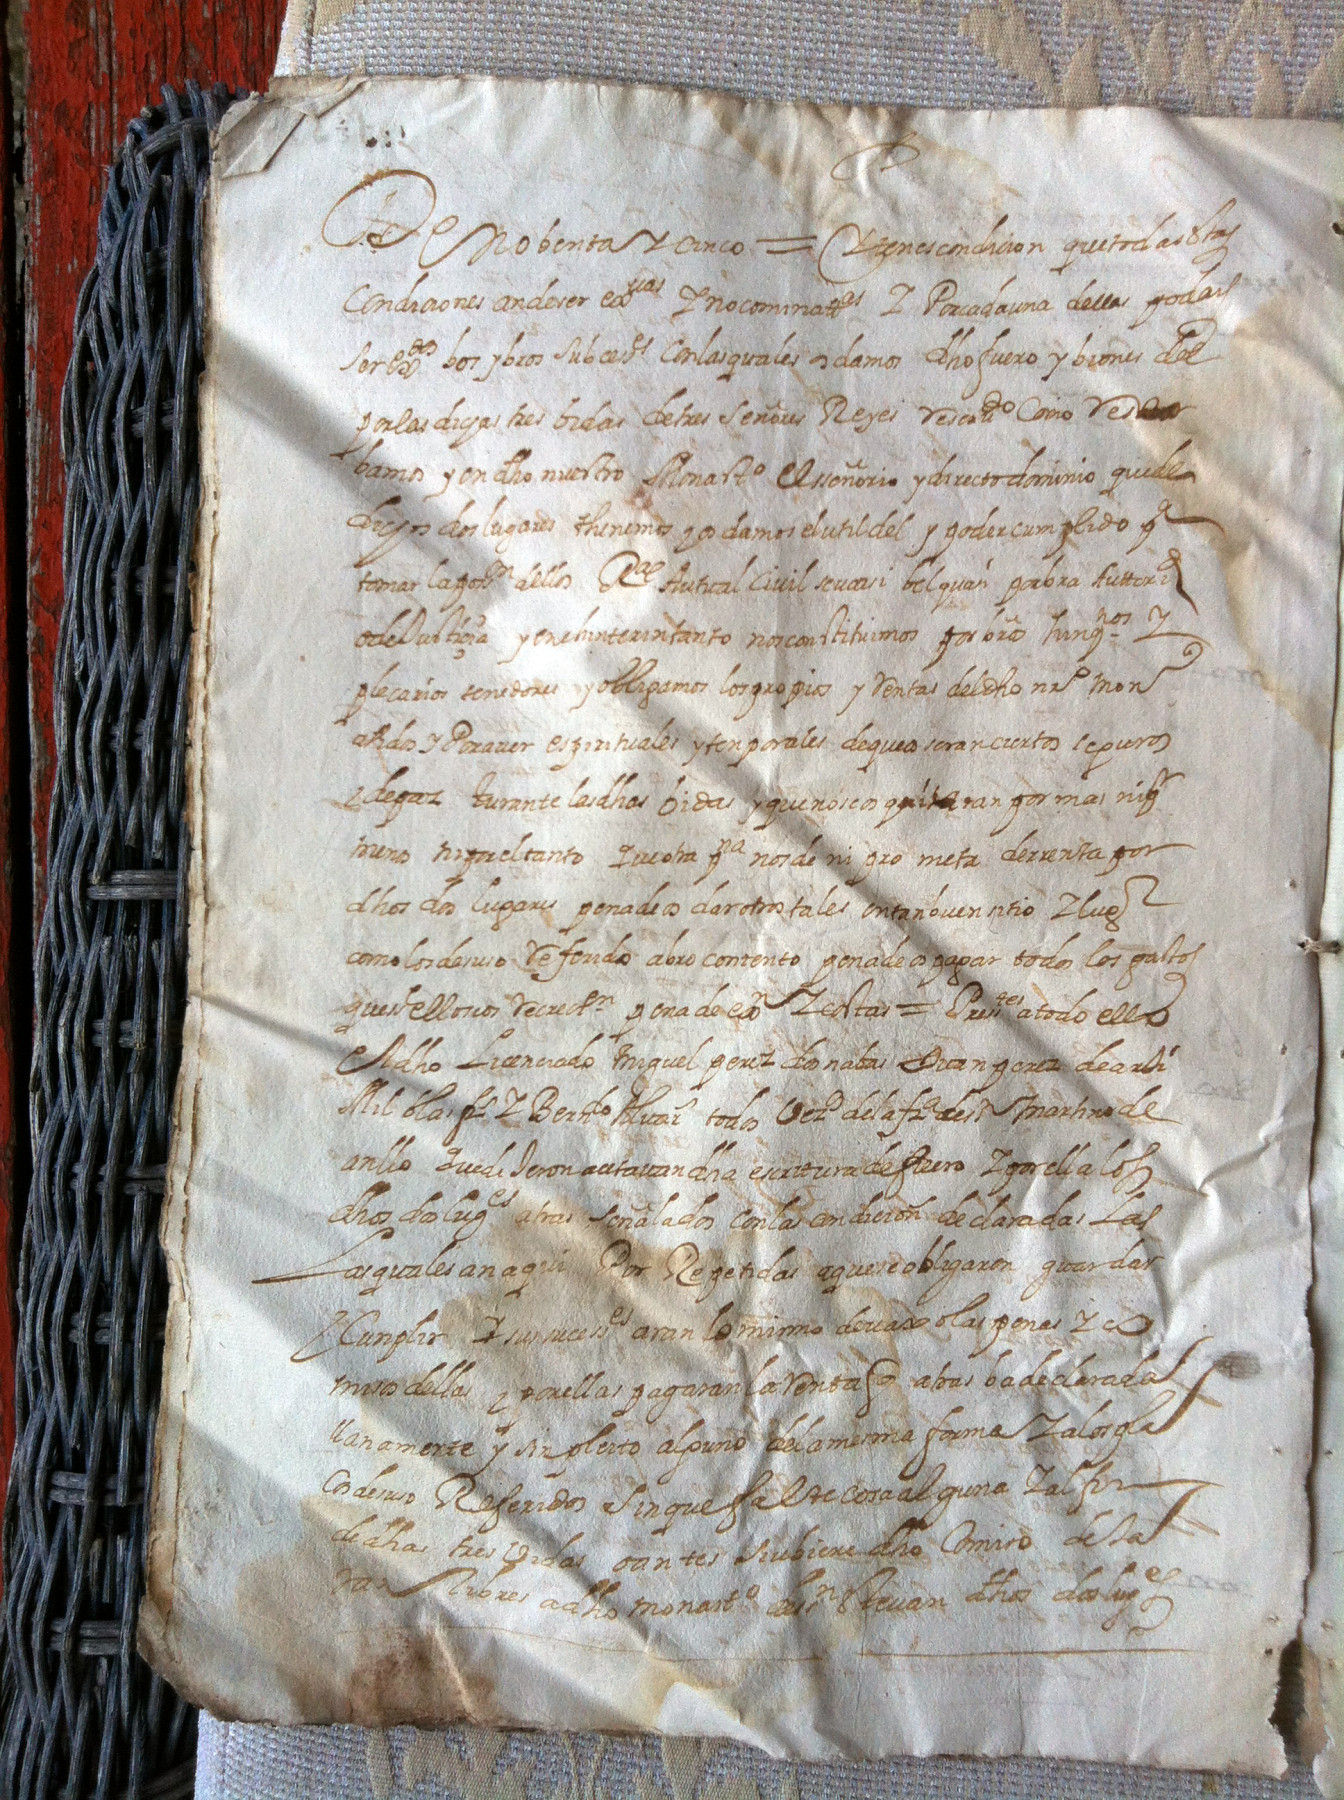 De Nobenta Y cinco = Yten es condicion que todas Estas
Condiciones an de ser ex^vas Y no cominat^as Y Por cada una dellas podais
ser ex^dos bos y bros subces^es Con las quales os damos dho fuero y bienes del
por las dichas tres bidas de tres señores Reyes Reserv^do Como Reser
bamos y en dho nuestro Monast^o el señorio y directo dominio que de
dichos dos lugares thenemos y os damos el util del y poder cumplido p^a
tomar la pos^on dellos R^al Autual Civil seu casi bel quan por bra autorid
o de Justiçia y en el interin tanto nos constituimos por bros Inq^nos Y
plecarios tenedores y obligamos los propios y Rentas del dho nr^o mon^o
abidos Y Por aver espirituales y tenporales de que os seran ciertos seguros
y de paz durante las dhas bidas y que no seos quitaran por mas ni p^r
menos ni por el tanto que otra p^na nos de ni pro meta de rrenta por
dhos dos lugares pena de os dar otros tales en tan buen sitio Y lug^r
como los desuso Referido a bro contento pena de os pagar todos los gastos
que sobre ello seos Recreci^n pena de ex^on Y costas = Pres^tes a todo ello
el dho Licenciado Miguel perez donabas Juan perez de arti
Mil blas fr^z Y Bern^do Albar^z todos vez^os de la fr^a de S^n Martino de
anllo que de Dixeron acetavan dha escritura de fuero Y por ella los
dhos dos lug^es atras señalados con las condicion declaradas Las
Las quales an aqui Por Repetidas a que se obligaron guardar
Y Cunplir Y sus suces^es aran lo mismo devaxo las penas Y co
miso dellas y por ellas pagaran la Renta q^e atras ba declarada
llanamente y sin pleito alguno de la mesma forma Y a los pla
cos desuso Referidos sin que falte cosa alguna Y al fin
de dhas tres Vidas o antes si ubiere dho Comiso dexa
ran libres a dho monast^o de s^n Estevan dhos dos lug^es